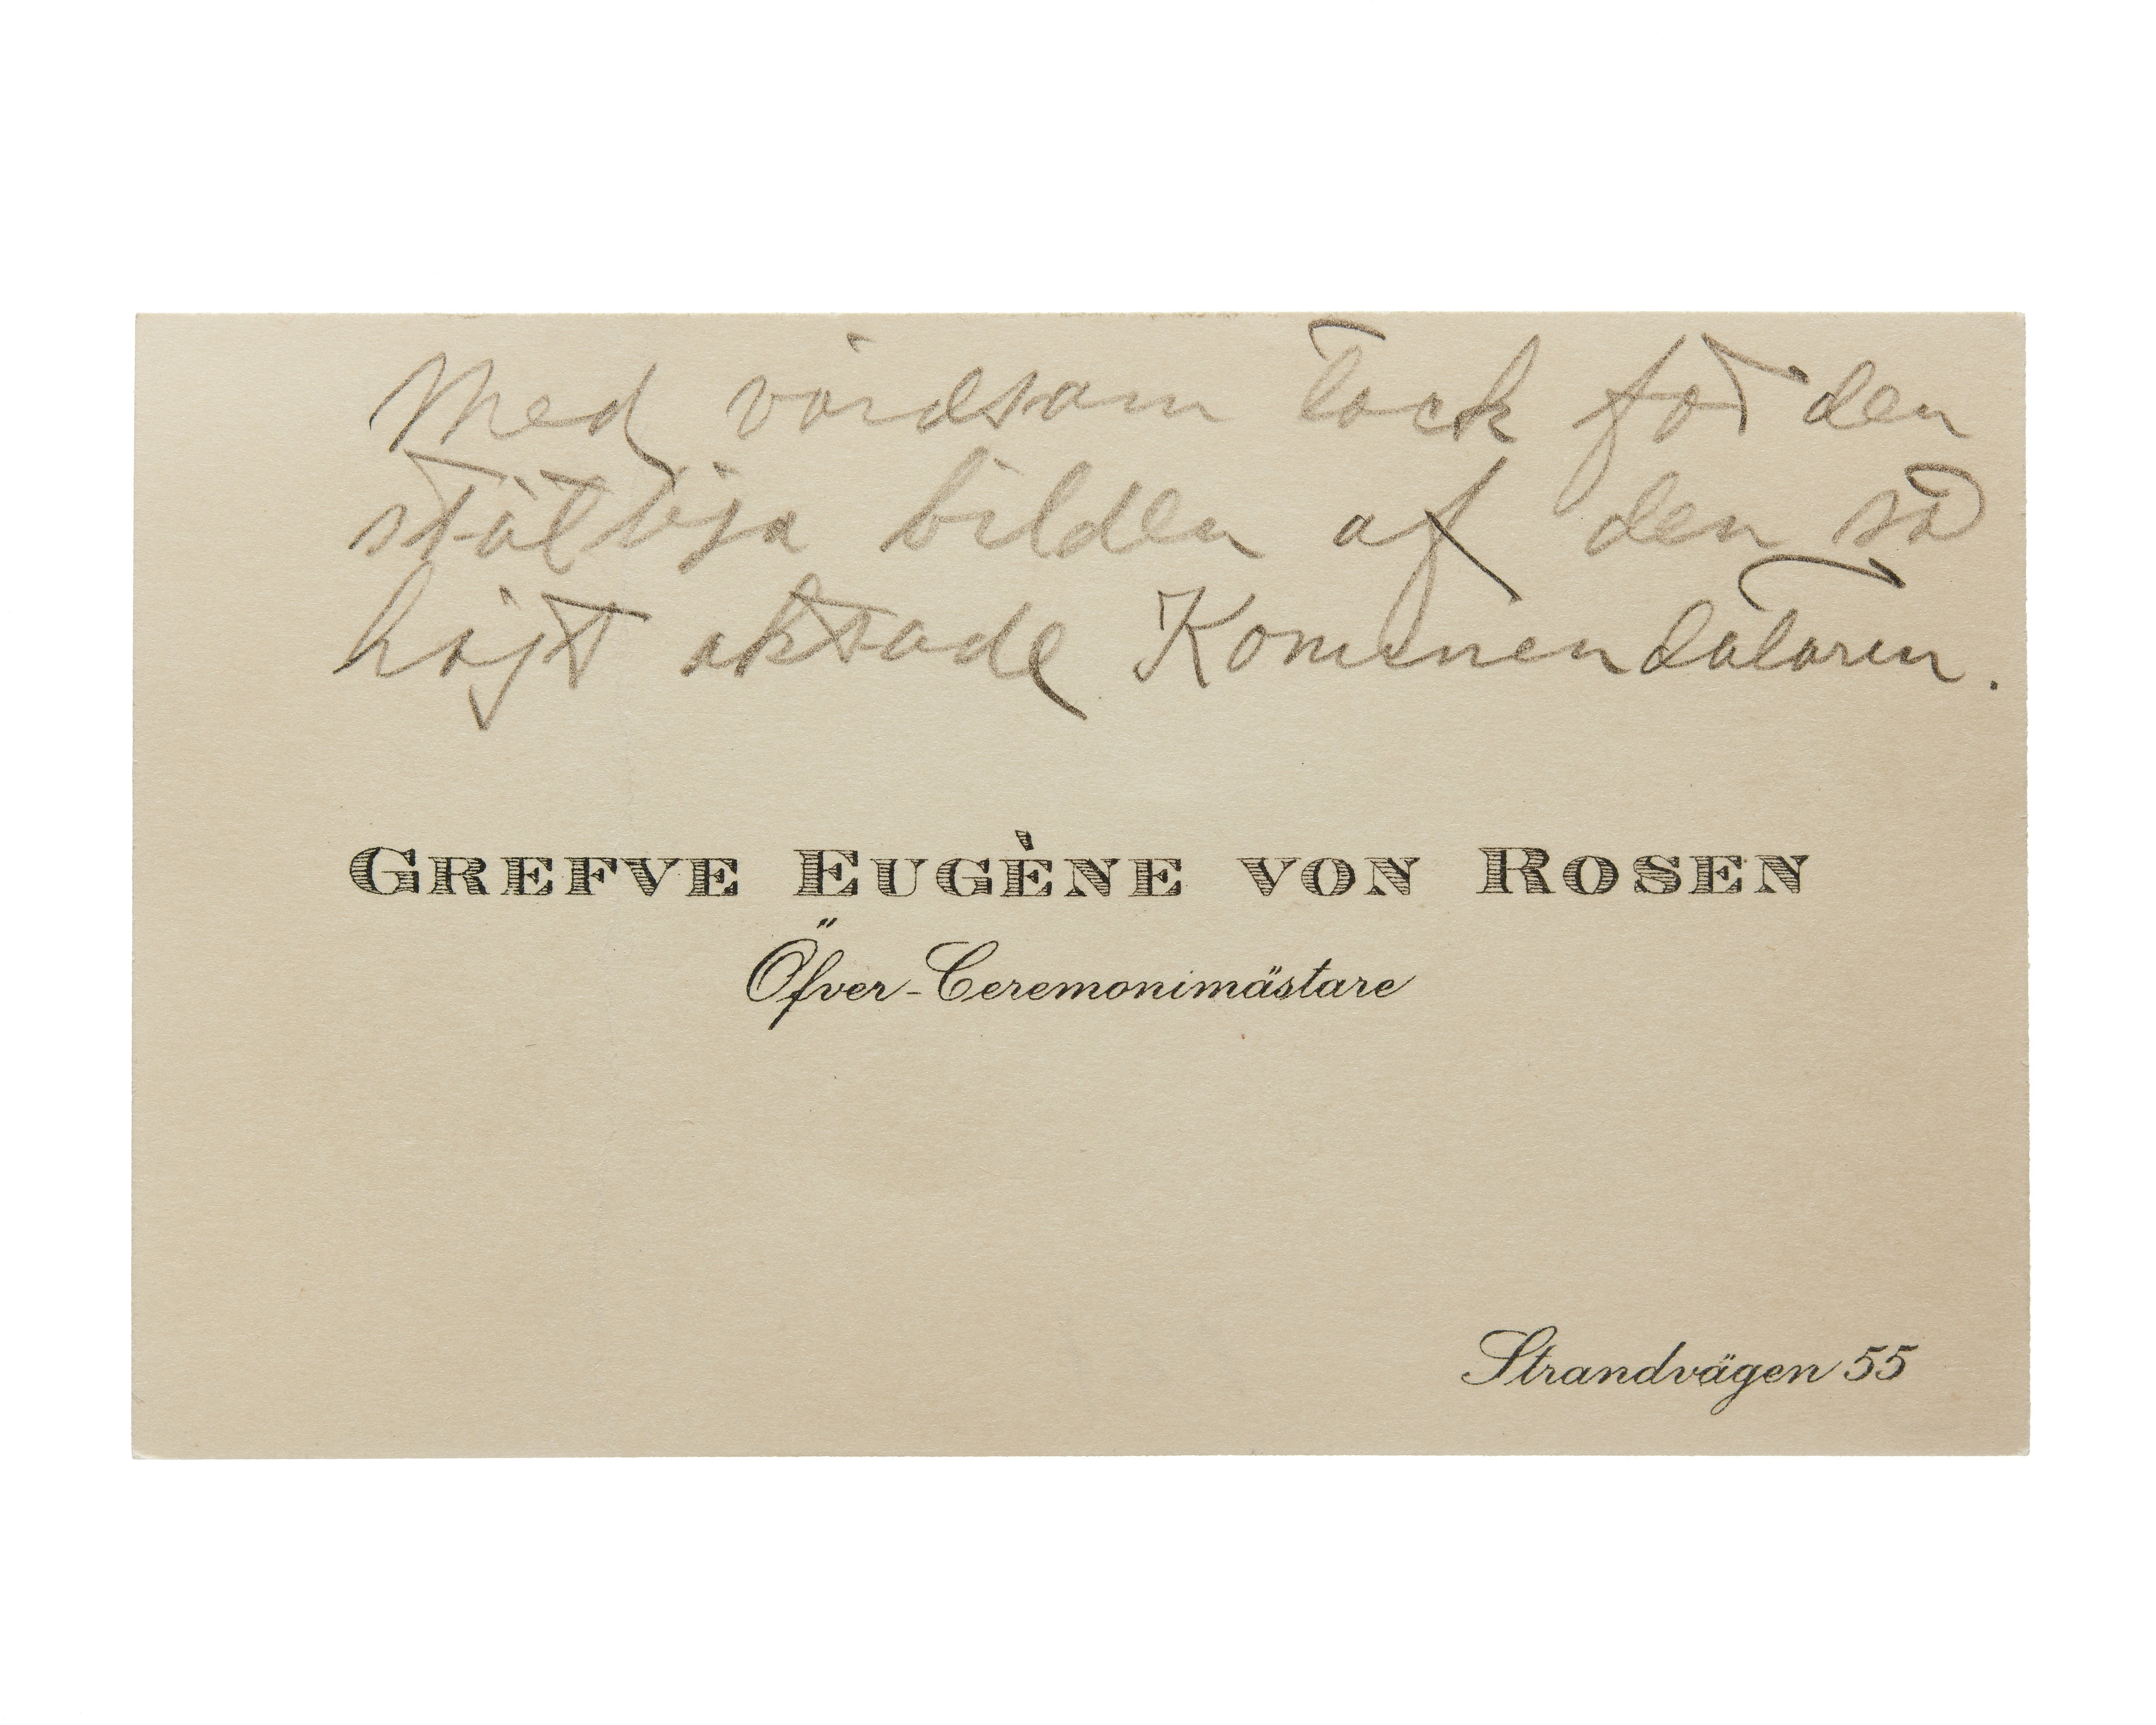 Med vördsam tack för den
ståtliga bilden af den så
högt aktade Kommendatören.
GREFVE EUGÈNE VON ROSEN
Öfver-Ceremonimästare
Strandvägen 55